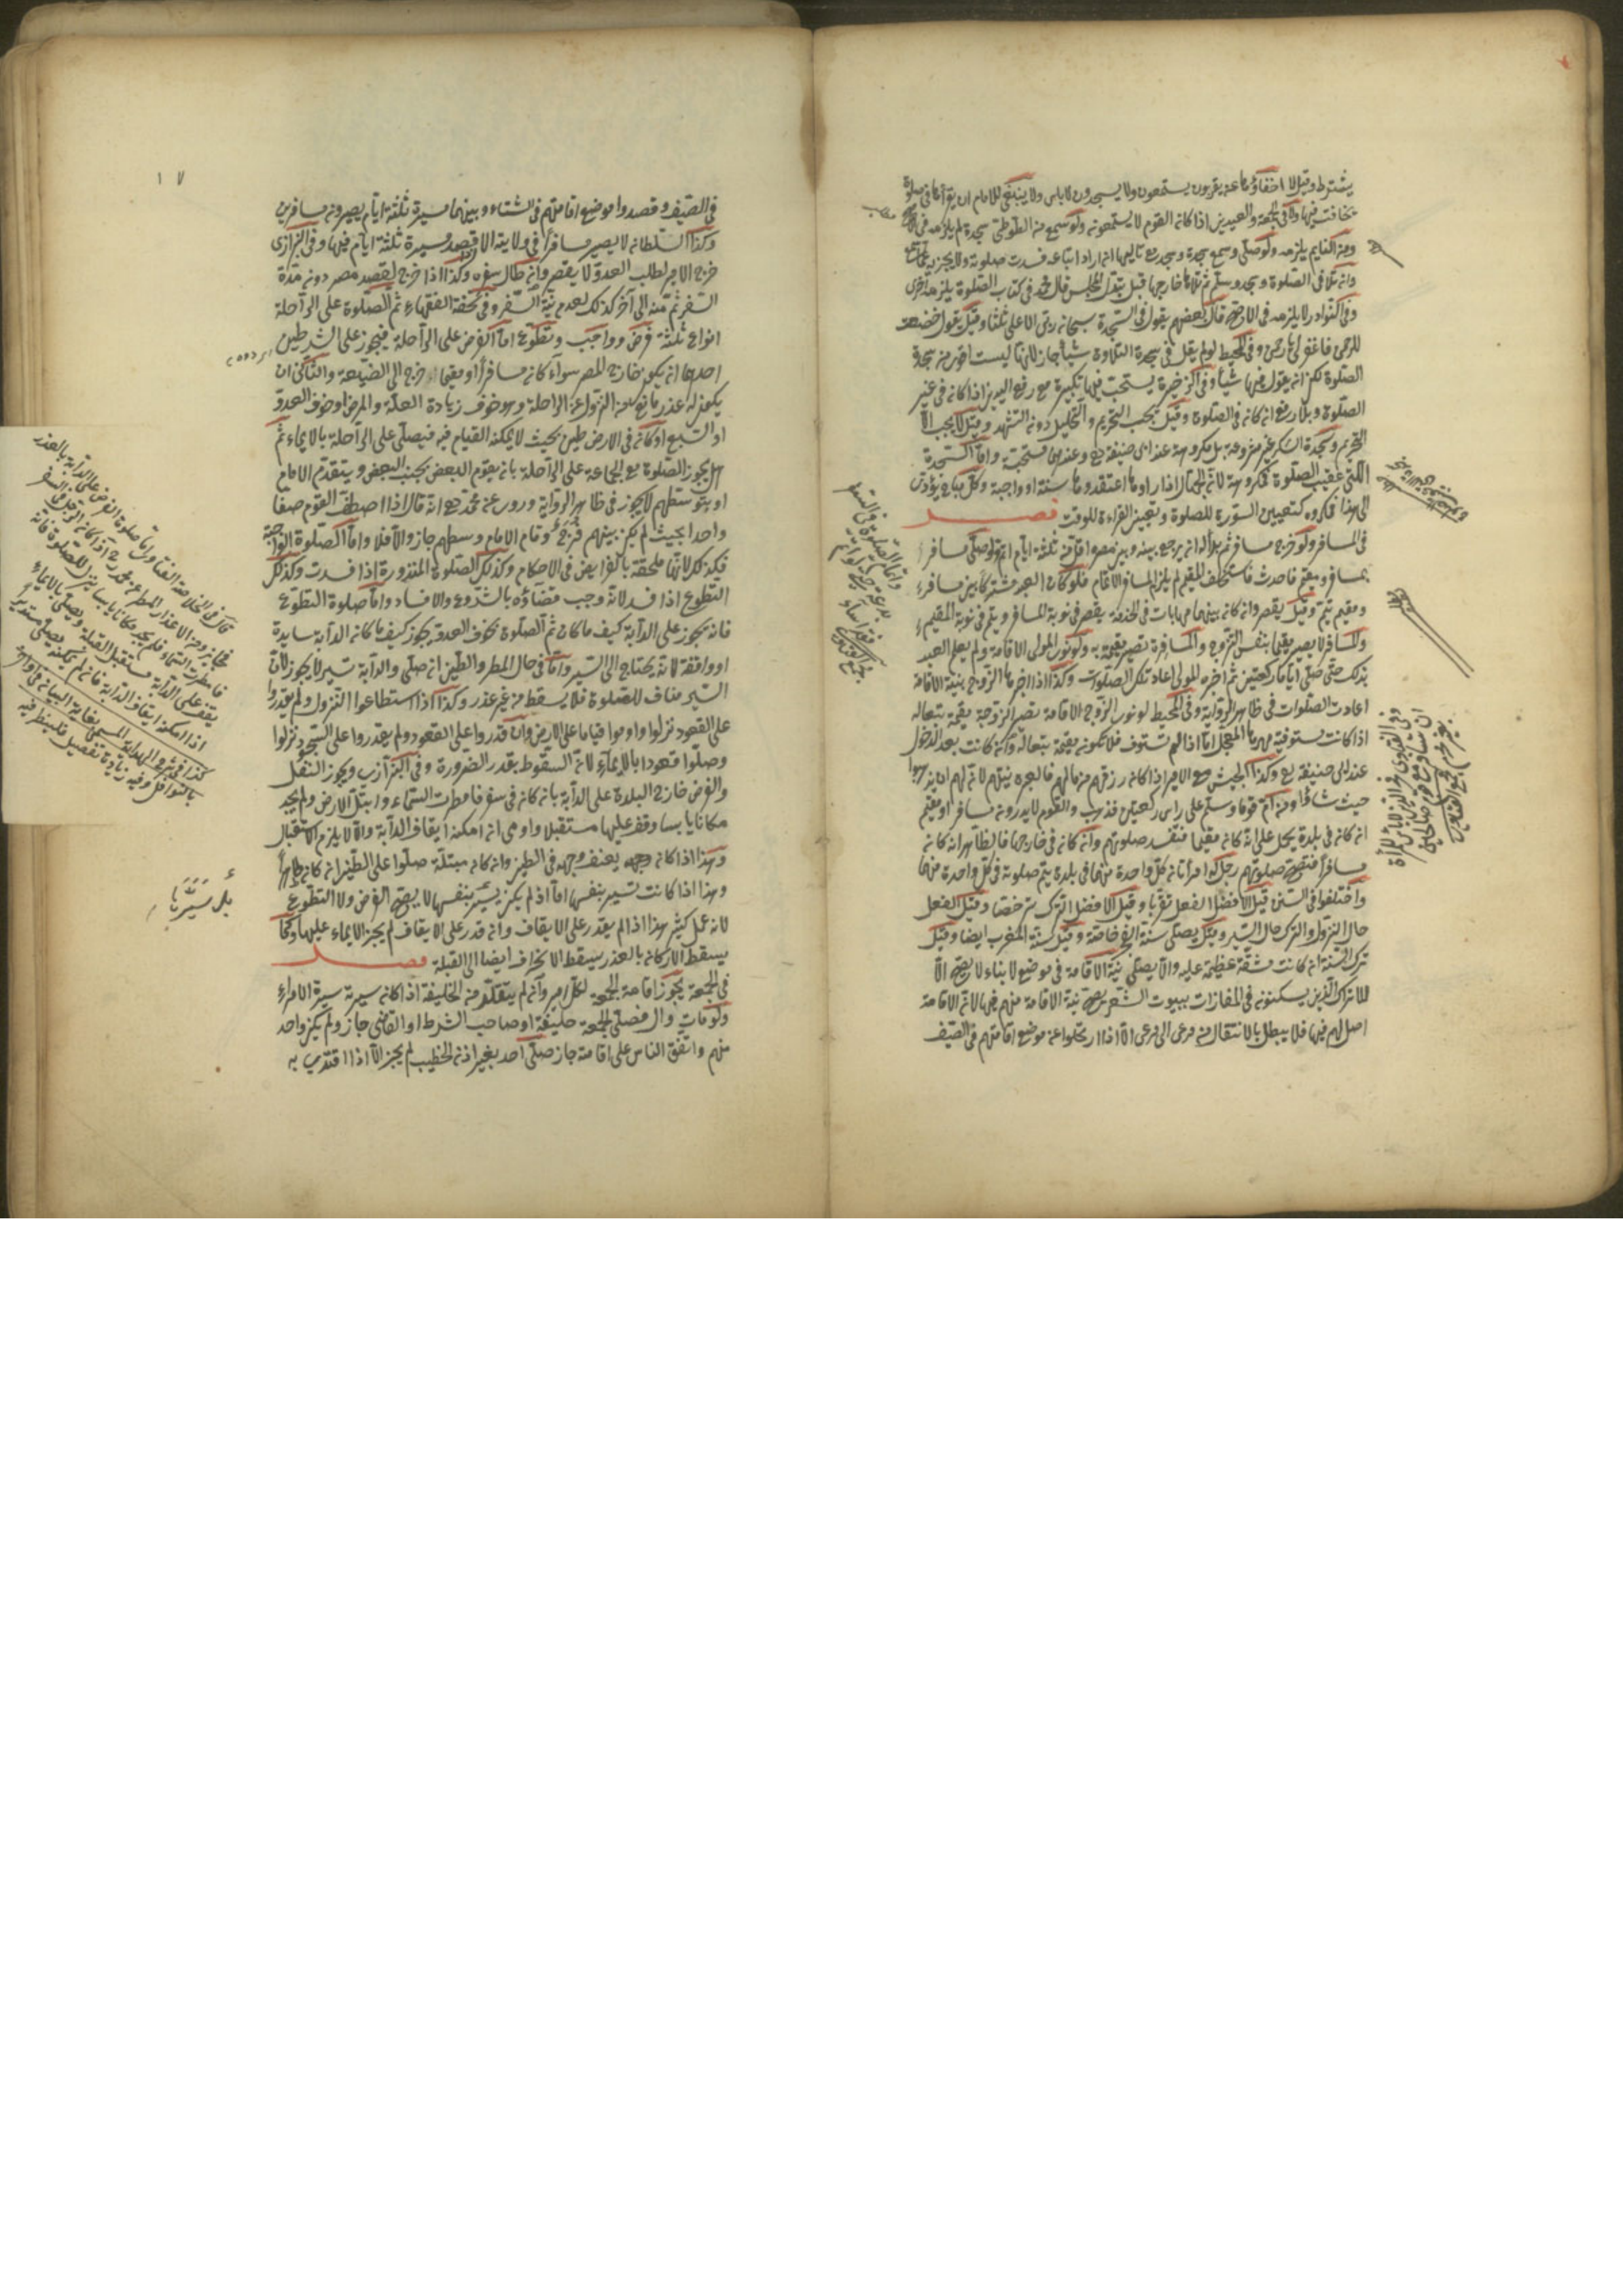 يشترط وقيل لا اخفاؤها عن يقربون يستمعون ولا يسجدون لا باس ولا ينبغى للامام ان يقرأها فى صلوة
يخافت فيها ولا فى الجمعة والعيدين اذا كانه القوم لا يستمعونه ولو سمع من الطوطى سجدة لم يلزمه فى
ومن النايم يلزمه ولو صلى وسمع سجدة وسجد مع تاليها ان اراد اتباعه فسدت صلوته ولا يجزيه
وان تلا فى الصلوة وسجد وسلم ثم تلاها خارجها قبل تبدل المجلس قال محمد فى كتاب الصلوة يلزمه اخرى
وفى النوادر لا يلزمه فى الاصح قال بعضهم يقول فى السجدة سبحانه ربى الاعلى ثلثا وقيل يقول خضعت
للرحمن فاغفر لى يا رحمن وفى المحيط لو لم يقل فى سجدة التلاوة شيأ جاز لانها ليست اقوى من سجدة
الصلوة لكن انه يقول فيها شيأ وفى الذخيرة يستحب فيها تكبيرة مع رفع اليدين اذا كانه فى غير
الصلوة وبلا رفع ان كانه فى الصلوة وقيل يجب التحريم والتحليل دونه التشهد وقيل لا يجب الا
التحريم وسجدة الشكر غير مشروعة بل مكروهة عند ابى حنيفة رح وعندهما مستحبة واما السجدة
التى عقيب الصلوة فمكروهة لان الجهال اذا راوها اعتقدوها سنة او واجبة وكل مباح يؤدى
الى هذا فمكروه كتعيين السورة للصلوة وتعيين القراءة للوقت فصل
فى المسافر ولو خرج مسافر ثم بدا له انه يرجع بينه وبين مصره اقل من ثلثة ايام اتم ولو صلى مسافر
بمسافر ومقيم فاحدث فاستخلف المقيم لم يلزم المسافر الاتمام فلو كان العبد مشتركا بين مسافر
ومقيم يتم وقيل يقصر وانه كانه بينهما مهايات فى الخدمة يقصر فى نوبة المسافر ويتم فى نوبة المقيم
والمسافر لا يصير مقيما بنفس التزوج والمسافرة تصير مقيمة به ولو نوى المولى الاقامة ولم يعلم العبد
بذلك حتى صلى اياما ركعتين ثم اخبره المولى اعاد تلك الصلوات وكذا اذا اخبرها الزوج بنية الاقامة
اعادت الصلوات فى ظاهر الرواية وفى المحيط لو نوى الزوج الاقامة تصير الزوجة مقيمة بتبعا له
اذا كانت مستوفية مهرها المعجل اما اذا لم تستوف فلا تكونه مقيمة بتبعا له وانه كانت بعد الدخول
عند ابى حنيفة رح وكذا الجيش مع الامير اذا كانه رزقهم من مالهم فالعبرة نيتهم لانه لهم ان يذهبوا
حيث شاؤا ومن ام قوما وسلم على راس ركعتين فذهب والقوم لا يدرونه مسافر او مقيم
انه كانه فى بلدة يحمل على انه كانه مقيما فتفسد صلوتهم وانه كانه فى خارجها فالظاهر انه كانه
مسافرا فتصح صلوتهم رجل له امرأتانه كل واحدة منهما فى بلدة يتم صلوته فى كل واحدة منها
واختلفوا فى السنن قيل الافضل الفعل تقربا وقيل الافضل الترك ترخصا وقيل الفعل
حال النزول والترك حال السير وقيل يصلى سنة الفجر خاصة وقيل سنة المغرب ايضا وقيل
ترك السنة انه كانت مشقة عظيمة عليه والا يصلى نية الاقامة فى موضع لا بناء لا يصح الا
للاتراك الذين يسكنونه فى المفازات ببيوت الشعر يصح نية الاقامة منهم فيها لانه الاقامة
اصل لهم فيها فلا يبطل بالانتقال من مرعى الى مرعى الا اذا ارتحلوا عن موضع اقامتهم فى الصيف
١٧
فى الصيف وقصدوا موضع اقامتهم فى الشتاء وبينهما مسيرة ثلثة ايام يصيرونه مسافرين
وكذا السلطانه لا يصير مسافرا فى ولايته الا قصد مسيرة ثلثة ايام فيها وفى البزازى
خرج الامير لطلب العدو لا يقصر وانه طال سفره وكذا اذا خرج لقصد مصر دونه مدة
السفر ثم منه الى آخر كذلك لعدم نية السفر وفى تحفة الفقهاء ثم الصلوة على الراحلة
انواع ثلثة فرض وواجب وتطوع اما الفرض على الراحلة فيجوز على الشرطين
احدهما انه يكون خارج المصر سواء كانه مسافرا او مقيما خرج الى الضيعة والثانى ان
يكون له عذر مانع من النزول عن الراحلة وهو خوف زيادة العلة والمرض او خوف العدو
او السبع او كانه فى الارض طين بحيث لا يمكنه القيام فيه فيصلى على الراحلة بالايماء ثم
هل يجوز الصلوة مع الجماعة على الراحلة بانه يقوم البعض بجنب البعض ويتقدم الامام
او يتوسطهم لا يجوز فى ظاهر الرواية وروى عن محمد رح انه قال اذا اصطف القوم صفا
واحدا بحيث لم يكن بينهم فرج وقام الامام وسطهم جاز والا فلا واما الصلوة الواجبة
فكذلك لانها ملحقة بالفرايض فى الاحكام وكذلك الصلوة المنذورة اذا فسدت وكذلك
التطوع اذا فسد لانه وجب قضاؤه بالشروع والافساد واما صلوة التطوع
فانه يجوز على الدابة كيف ما كان ثم الصلوة بخوف العدو يجوز كيف ما كانه الدابة سايرة
او واقفة لانه يحتاج الى السير واما فى حال المطر والطين انه صلى والدابة تسير لا يجوز لان
السير مناف للصلوة فلا يسقط من غير عذر وكذا اذا استطاعوا النزول ولم يقدروا
على القعود نزلوا واوموا قياما على الارض وان قدروا على القعود ولم يقدروا على السجود نزلوا
وصلوا قعودا بالايماء لانه السقوط بقدر الضرورة وفى البزازى ويجوز النفل
والفرض خارج البلدة على الدابة بانه كانه فى سفر فامطرت السماء وابتل الارض ولم يجد
مكانا يابسا وقف عليها مستقبلا واومى انه امكنه ايقاف الدابة والا لا يلزم الاستقبال
وهذا اذا كانه وجهه يغيب وجهه فى الطين وانه كانه مبتلة صلوا على الطين انه كانه طاهرا
وهذا اذا كانت تسير بنفسها اما اذ لم يكن يسير بنفسها لا يصح الفرض ولا التطوع
لانه عمل كثير هذا اذا لم يقدر على الايقاف وانه قدر على الايقاف لم يجز الايماء عليها وكما
يسقط الاركانه بالعذر يسقط الانحراف ايضا الى القبلة فصل
فى الجمعة يجوز اقامة الجمعة لكل امير وانه لم يتقلد من الخليفة اذا كانه سيرته سيرة الامراء
ولو مات وال فصلى الجمعة خليفة او صاحب الشرط او القاضى جاز ولم يكن واحد
منهم واتفق الناس على اقامته جاز صلى احد بغير اذنه الخطيب لم يجز الا اذا اقتدى به
قال فى الخلاصة الفتاوى اما صلوة الفرض على الدابة بالعذر
فجايز ومن الاعذار المطر عن محمد رح اذا كانه الرجل فى السفر
فامطرت السماء فلم يجد مكانا يابسا ينزل للصلوة فانه
يقف على الدابة مستقبل القبلة ويصلى بالايماء
اذا امكنه ايقاف الدابة فانه لم يمكنه يصلى مستدبر